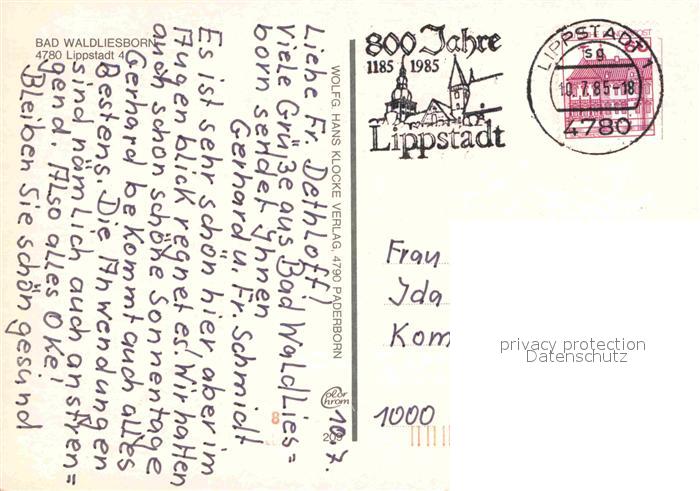 BAD WALDLIESBORN
4780 Lippstadt 4
10.7.
Liebe Fr. Dethloff!
Viele Grüße aus Bad Waldlies=
born sendet Ihnen
Gerhard u. Fr. Schmidt
Es ist sehr schön hier, aber im
Augenblick regnet es! Wir hatten
auch schon schöne Sonnentage
Gerhard bekommt auch alles
Bestens. Die Anwendungen
sind nämlich auch anstren=
gend. Also alles Oke!
Bleiben Sie schön gesund
WOLFG. HANS KLOCKE VERLAG, 4790 PADERBORN
color
chrom
8
209
800 Jahre
1185 1985
Lippstadt
LIPPSTADT 1
sd
10.7.85-18
4780
Frau
Ida
Kom
1000
privacy protection
Datenschutz